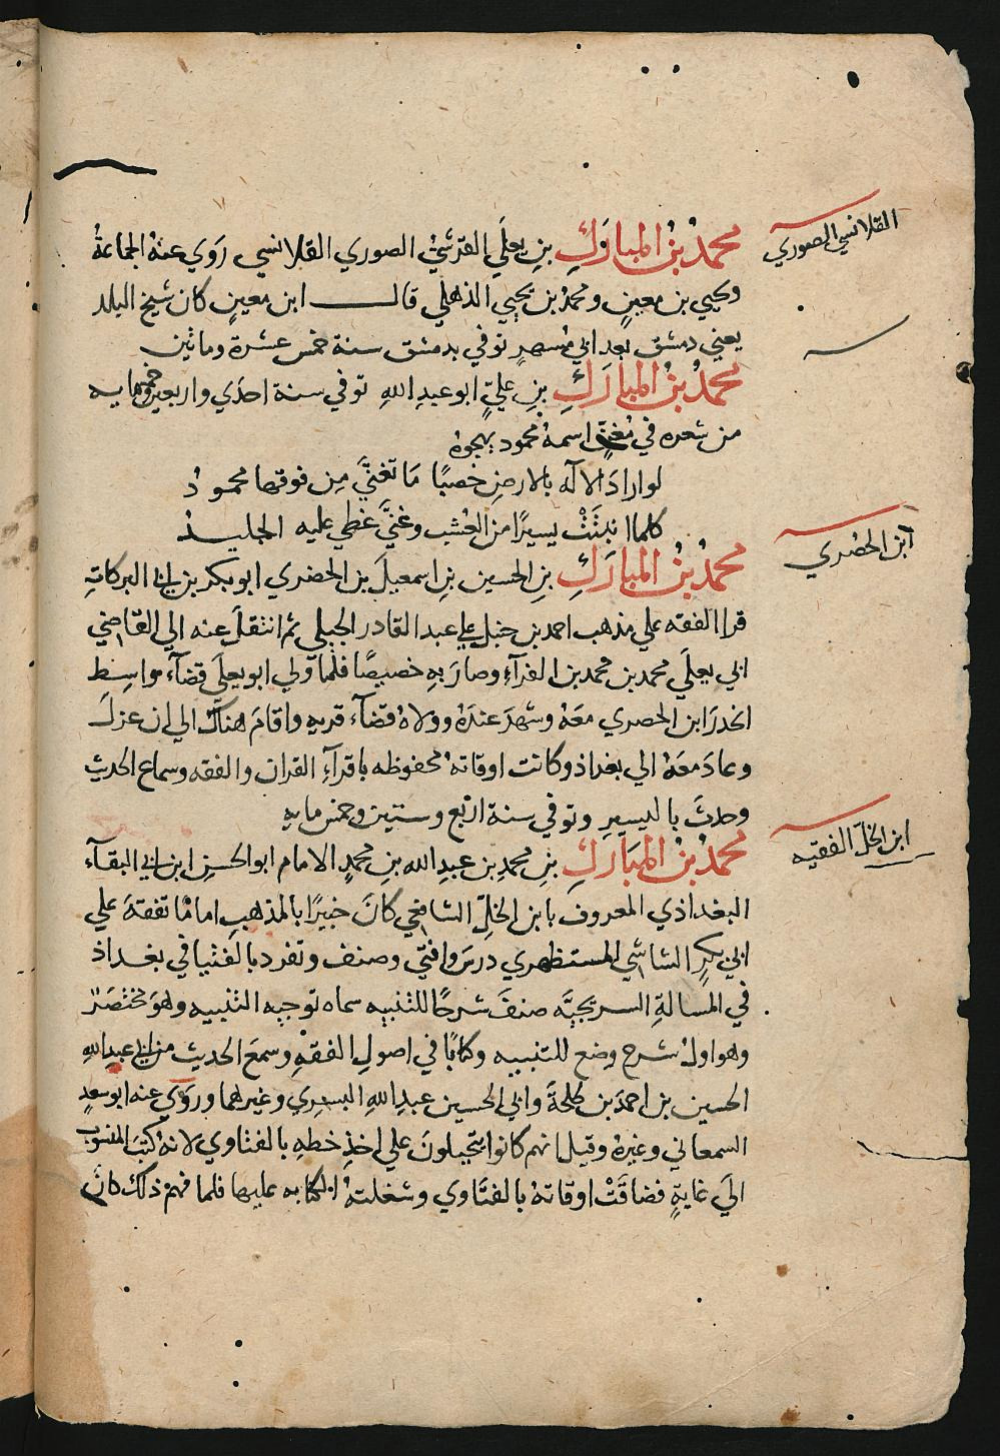 القلانسي الصوري
محمدُ بنُ المبارَكِ بنِ يعلَي القرشيُّ الصوري القلانسي روَي عنهُ الجماعةُ
ويحيي بن معينٍ ومحمدُ بن يحيي الذهلي قال ابن معينٍ كان شيخ البلد
يعني دمشق بعد ابي مُسهرٍ توفي بدمشق سنة خمس عشرة ومائتين
محمدُ بنُ المبارَكِ بنِ عليٍّ ابو عبدِ اللهِ توفي سنة احدَي واربعين وخمسمايه
من شعره في مُغنٍّ اسمهُ محمود يهجوهُ
لو ارادَ الاله بالارضِ خصبًا مَا تغنَّي مِن فوقها محمودُ
كلما انبتَتْ يسيرًا من العُشب وغنَّي غطي عليه الجليدُ
ابن الحضري
محمدُ بنُ المبارَكِ بنِ الحسين بنِ اسمعيلَ بن الحضري ابو بكر بن ابي البركاتِ
قرا الفقه علي مذهب احمد بن حنبل علي عبد القادر الجيلي ثم انتقلَ عنه الي القاضي
ابي يعلَي محمد بن محمد بن الفرآءِ وصارَ بهِ خصيصًا فلما ولي ابو يعلَي قضآءَ واسِط
انحدرَ ابن الحصري معَهُ وشهدَ عندَهُ وولاهُ قضآءَ قريهٍ واقامَ هناكَ الي ان عزلَ
وعادَ معَهُ الي بغداذ وكانت اوقاتهُ محفوظه باقرآءِ القران والفقه وسماع الحديثِ
وحدثَ باليسيرِ وتوفي سنة اربَع وستين وخمس مايهٍ
ابن الخلّ الفقيه
محمدُ بنُ المبَارَكِ بنِ محمدِ بن عبدِ الله بنِ محمدٍ الامام ابو الحسن ابن ابي البقآء
البغداذي المعروف بابن الخلِّ الشافعي كانَ خبيرًا بالمذهبِ امامًا تفقهَ علي
ابي بكرٍ الشاشي المستظهري درسَ وافتَي وصنف وتفرد بالفتيا في بغداذ
في المسالةِ السريجيَّه صنفَ شرحًا للتنبيه سماه توجيه التنبيه وهوَ مختصَرٌ
وهو اولُ شرحٍ وضع للتنبيه وكتابًا في اصولِ الفقهِ وسمعَ الحديث من ابي عبدِ اللهِ
الحسين بن احمدَ بن طلحةَ وابي الحسين عبدِ اللهِ البسري وغيرهما وروَي عنه ابو سعدٍ
السمعاني وغيرهُ وقيل انهم كانوا يتحيلونَ علي اخذِ خطهِ بالفتاوي لانهُ كتبَ المنسوب
اليَ غايةٍ فضاقَتْ اوقاتهُ بالفتَاوي وشغلتهُ الكتابه عليها فلما فهمَ ذلك كانَ